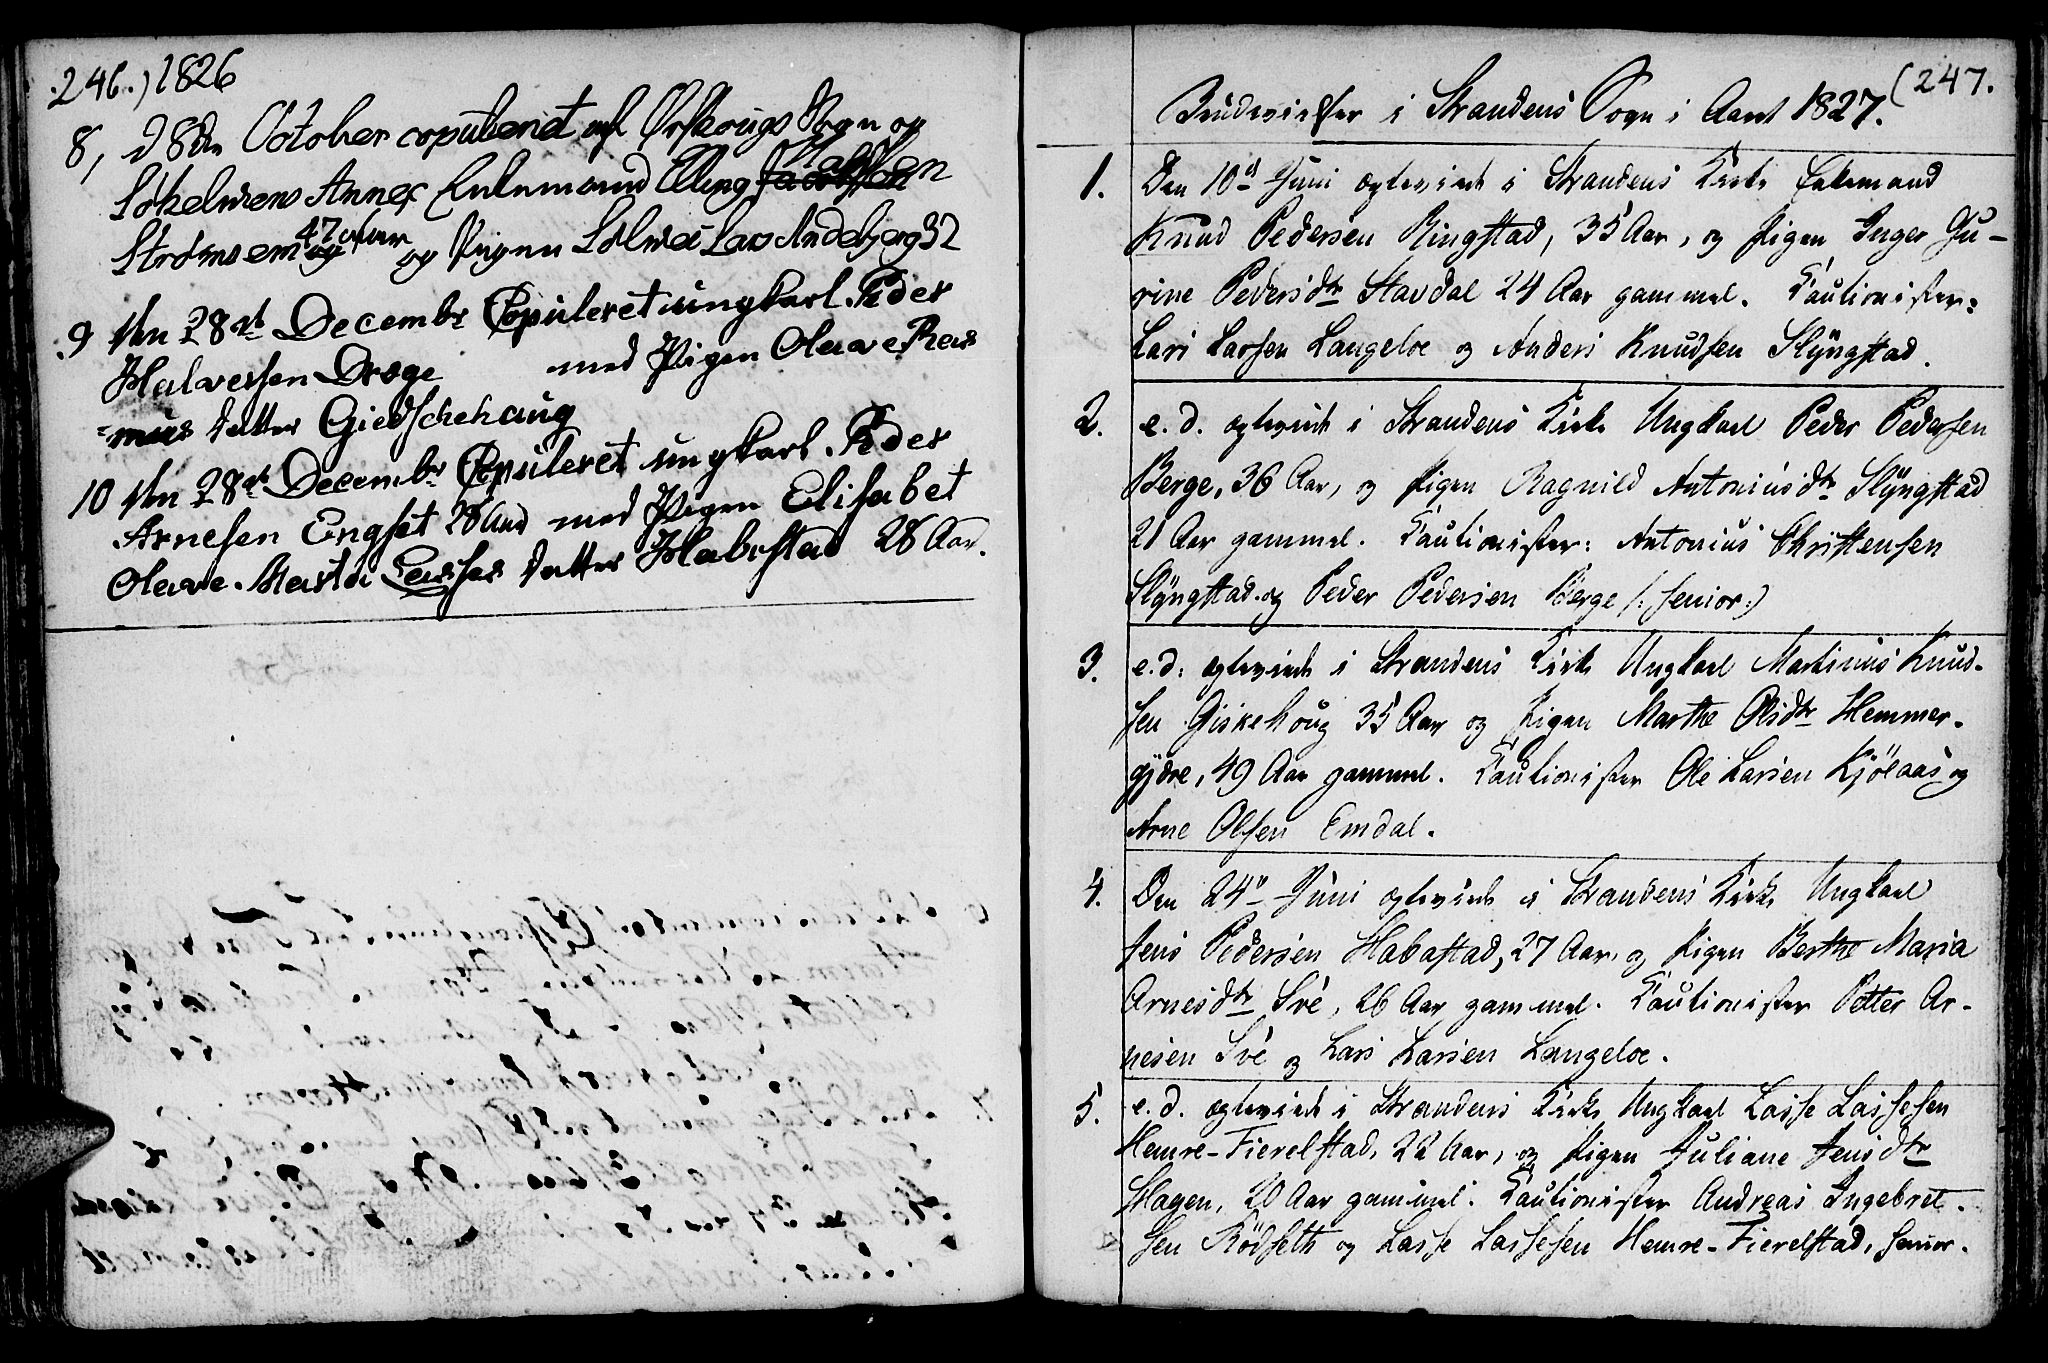 246.) 1826
8, d 8de October copuleret af Ørskougs Sogn og
Søkelvens Annex Enkemand Elling Jacobsen
Strømsem og 47 Aar og Pigen Solvei Lars Andebjerg 32
9 den 28de Decembr Copuleret ungkarl. Peder
Halvorsen Drøge med Pigen Olave Ras
=mus datter Giedschehaug
10 den 28de Decembr Copuleret ungkarl. Peder
Arnesen Engset 28 Aar med Pigen Elisabet
Olave. Marta Lasses datter Habestad 28 Aar.
(247.
Brudevielser i Strandens Sogn i Aaret 1827.
1. Den 10de Juni ægteviet i Strandens Kirke Enkemand
Knud Pedersen Ringstad, 35 Aar, og Pigen Inger Ju-
rine Pedersdtr Stavdal 24 Aar gammel. Cautionister:
Lars Larsen Langeloe og Anders Knudsen Slÿngstad.
2. e. d. ægteviet i Strandens Kirke Ungkarl Peder Pedersen
Berge, 36 Aar, og Pigen Ragnild Antoniusdtr Slÿngstad
21 Aar gammel. Cautionister: Antonius Christensen
Slÿngstad og Peder Pedersen Berge /: senior :/
3. e. d. ægteviet i Strandens Kirke Ungkarl Martinus Knud-
sen Giskehoug 35 Aar og Pigen Marthe Olsdtr Hemmer-
gjdre, 49 Aar gammel. Cautionister Ole Larsen Kjölaas og
Arne Olsen Emdal.
4. Den 24de Juni ægteviet i Strandens Kirke Ungkarl
Jens Pedersen Habastad, 27 Aar, og Pigen Berthe Maria
Arnesdtr Své, 26 Aar gammel. Cautionister Petter Ar-
nesen Své og Lars Larsen Langeloe.
5. e. d. ægteviet i Strandens Kirke Ungkarl Lasse Lassesen
Hemre-Fierelstad, 22 Aar, og Pigen Juliane Jensdtr
Hagen, 20 Aar gammel. Cautionister Andreas Ingebret-
sen Rödseth og Lasse Lassesen Hemre-Fierelstad, senior.